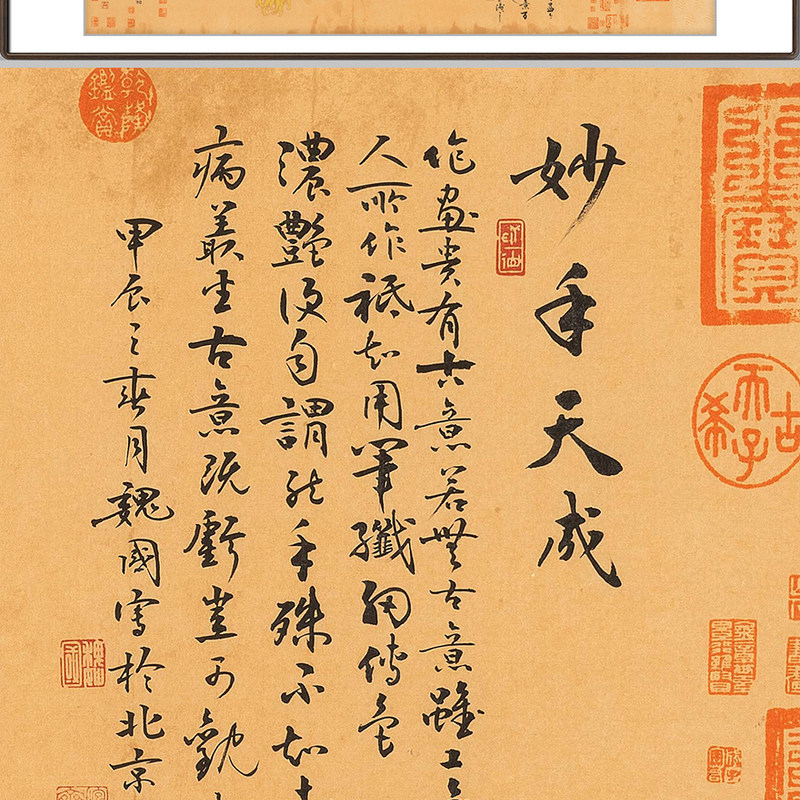 妙手天成
作畫貴有古意若無古意雖工
人所作祗知用筆纖細傅色
濃艷便自謂能手殊不知
病叢生古意既虧豈可觀
甲辰之春月魏國寫於北京
古希天子
乾隆鑑賞